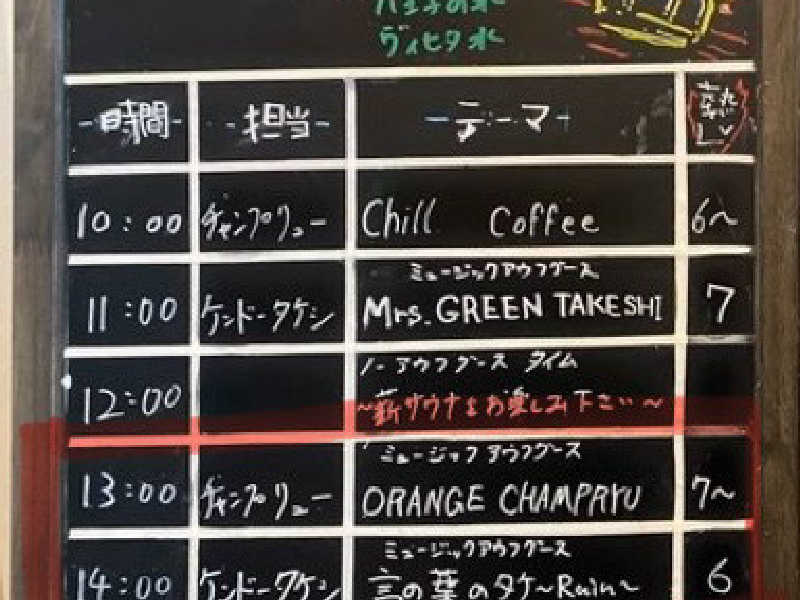 八王子の水
ヴィヒタ水
-時間- -担当- -テーマ- 熱波Lv
10:00 チャンプリュー Chill Coffee 6~
ミュージックアウフグース
11:00 ケンドータケシ Mrs. GREEN TAKESHI 7
ノーアウフグース タイム
12:00 ~薪サウナをお楽しみ下さい~
ミュージックアウフグース
13:00 チャンプリュー ORANGE CHAMPRYU 7~
ミュージックアウフグース
14:00 ケンドータケシ 言の葉のタケ~Rain~ 6